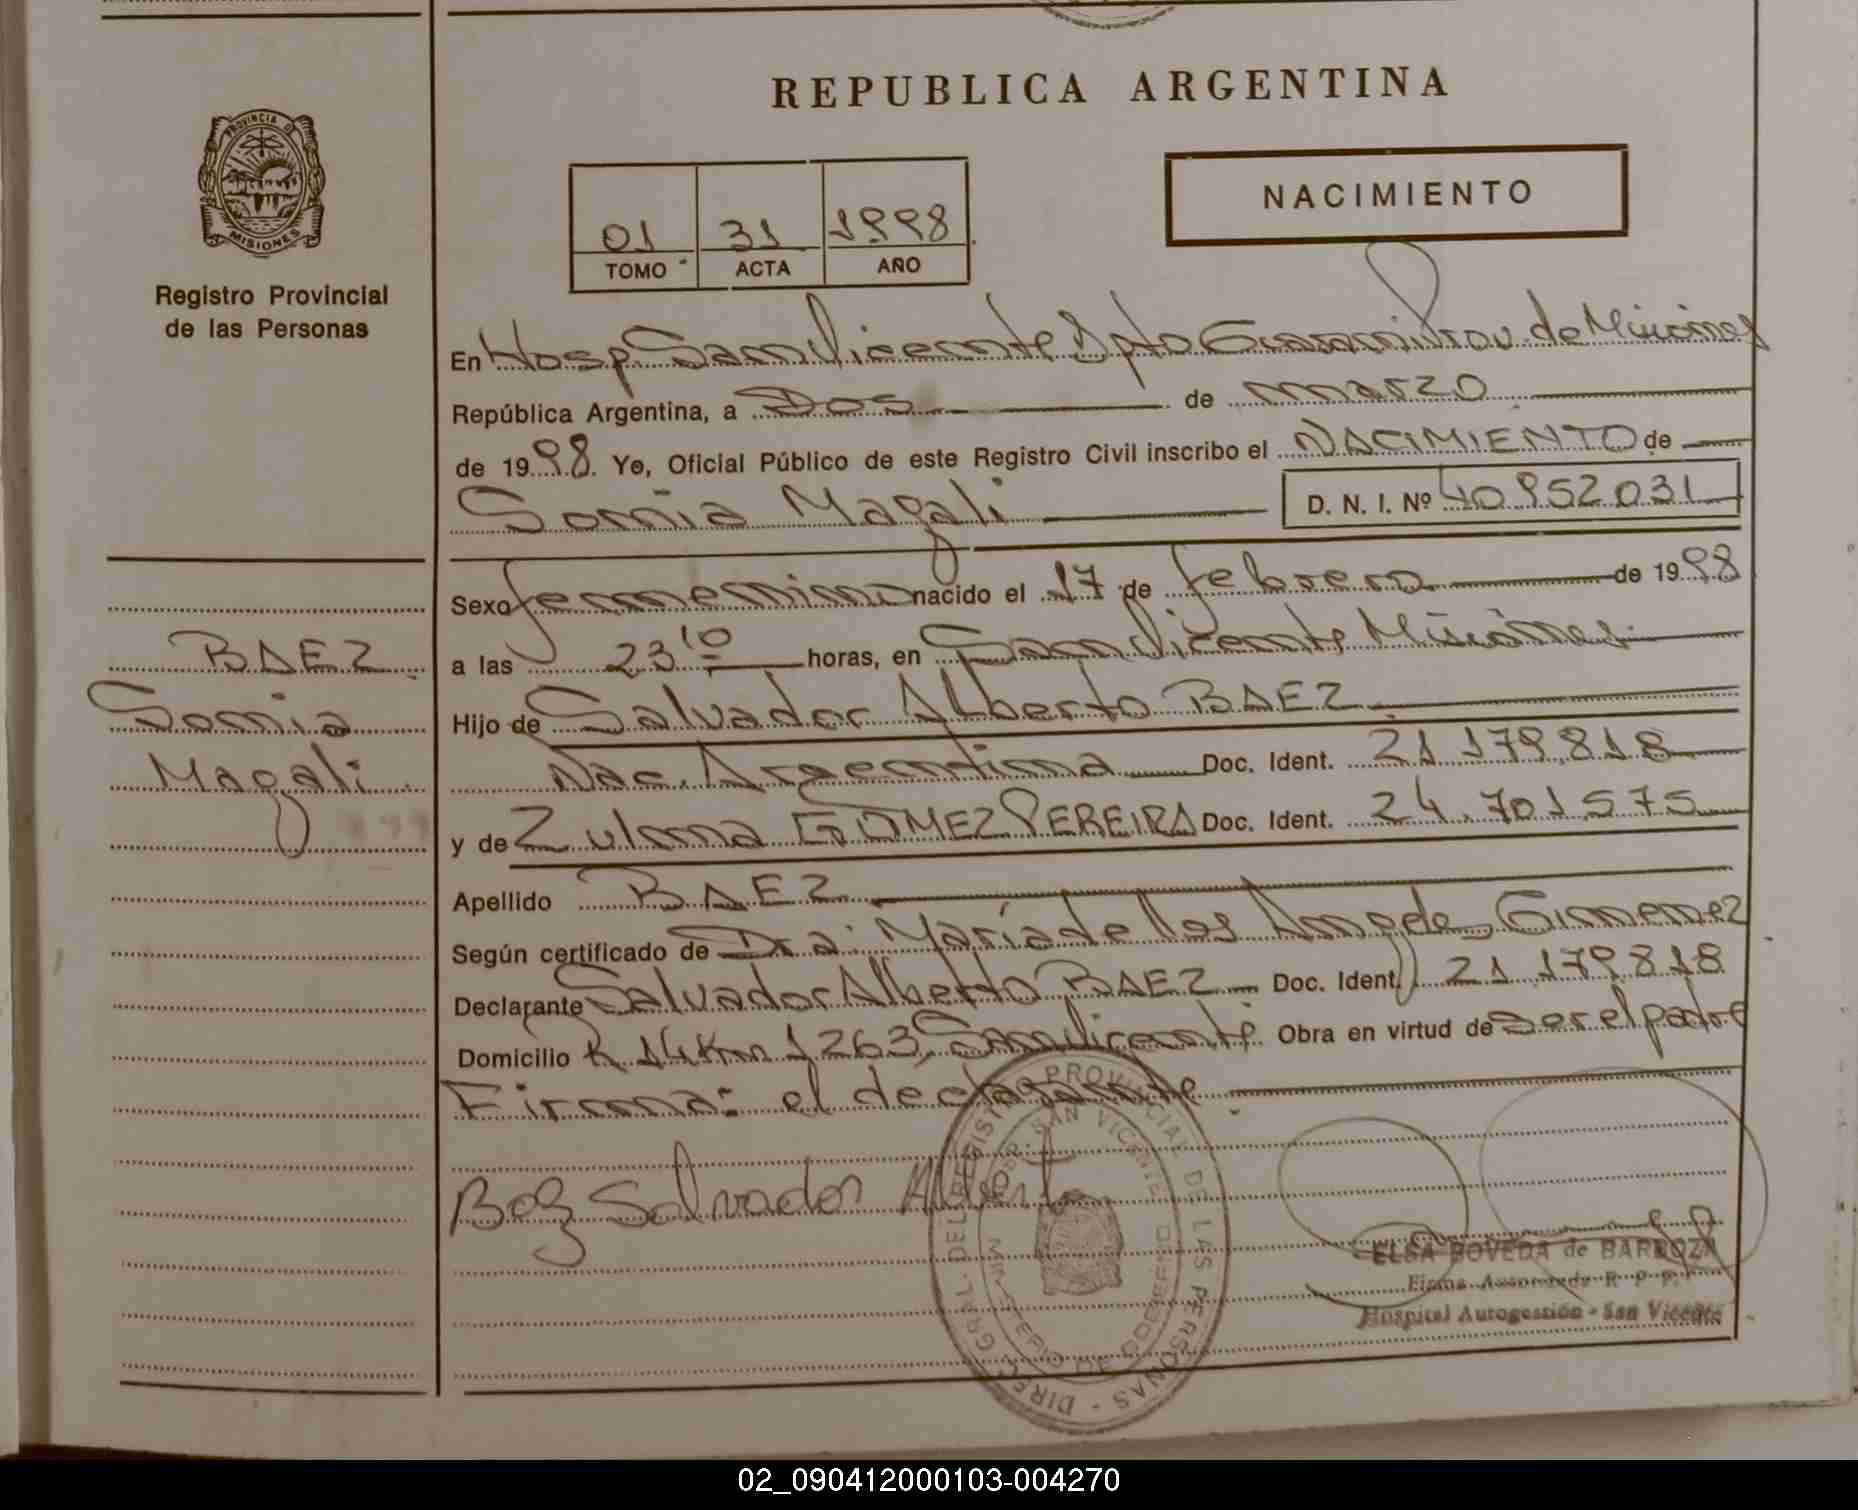 REPUBLICA ARGENTINA
PROVINCIA D
MISIONES
Registro Provincial
de las Personas
NACIMIENTO
01 31 1998
TOMO ACTA AÑO
En Hosp San Vicente Dpto Guaraní Prov. de Misiones
República Argentina, a Dos de marzo
de 1998. Yo, Oficial Público de este Registro Civil inscribo el NACIMIENTO de
Sonia Magali D. N. I. Nº 40952031
Sexo femenino nacido el 17 de febrero de 1998
a las 23 10 horas, en San Vicente Misiones
BAEZ
Sonia
Magali
Hijo de Salvador Alberto BAEZ
Nac. Argentina Doc. Ident. 21 179.818
y de Zulma GOMEZ PEREIRA Doc. Ident. 24.701575
Apellido BAEZ
Según certificado de Dra. María de los Angeles Gimenez
Declarante Salvador Alberto BAEZ Doc. Ident. 21 179.818
Domicilio R 14 Km 1263 San Vicente Obra en virtud de ser el padre
Firma: el declarante
Baez Salvador Alberto
DIREC. GRAL. DEL REGIST. PROVINCIAL DE LAS PERSONAS
SAN VICENTE
MINISTERIO DE GOBIERNO
ELSA BOVEDA de BARBOZA
Firma Autorizada R. P. P.
Hospital Autogestión - San Vicente
02_090412000103-004270